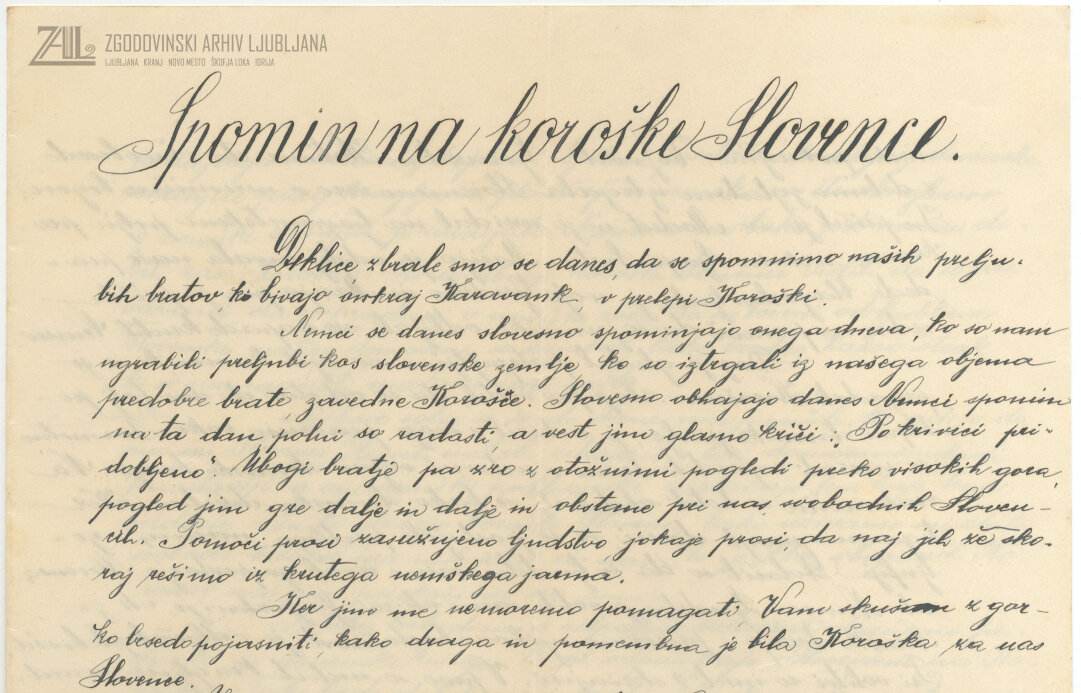 ZAL ZGODOVINSKI ARHIV LJUBLJANA
LJUBLJANA KRANJ NOVO MESTO ŠKOFJA LOKA IDRIJA
Spomin na koroške Slovence.
Deklice zbrale smo se danes, da se spomnimo naših prelju-
bih bratov, ki bivajo onkraj Karavank, v prelepi Koroški.
Nemci se danes slovesno spominjajo onega dneva, ko so nam
ugrabili preljubi kos slovenske zemlje ko so iztrgali iz našega objema
predobre brate, zavedne Korošče. Slovesno obhajajo danes Nemci spomin
na ta dan, polni so radasti, a vest jim glasno kriči: „Po krivici pri-
dobljeno". Ubogi bratje pa zro z otožnimi pogledi preko visokih gora,
pogled jim gre dalje in dalje in obstane pri nas, svobodnih Sloven-
cih. Pomoči prosi zasužnjeno ljudstvo, jokaje prosi, da naj jih že sko-
raj rešimo iz krutega nemškega jarma.
Ker jim me ne moremo pomagati, Vam skušam z gor-
ko besedo pojasniti, kako draga in pomembna je bila Koroška za nas
Slovence.